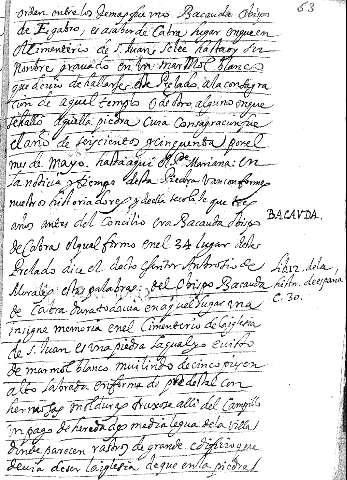 63
orden entre los demas que uno Bacauda Obispo
de Egabro, es a saber de Cabra lugar en que en
el Cimenterio de S. Juan se lee hasta oy su
nombre gravado en un marmol blanco
que devio de hallarse este Prelado a la consagra
cion de aquel templo o de otro alguno en que
se hallo aquella piedra cuia consagracion fue
el año de seyscientos y cinquenta por el
mes de Mayo. hasta aqui el Pe Mariana: en
la noticia y tiempo desta Piedra van conformes
nuestros historiadores y della se colige que tres
años antes del Concilio era Bacauda Obispo
de Cabra el qual firmo en el 34 lugar deste
Prelado dice el docto escritor Ambrosio de
Morales estas palabras: del Obispo Bacauda
de Cabra dura todavia en aquel lugar una
insigne memoria en el Cimenterio de la iglesia
de S. Juan es una piedra la qual yo e visto
de marmol blanco mui lindo de cinco pies en
alto labrada en forma de pedestal con
hermosas molduras truxose alli del Campillo
un pago de heredades media legua de la villa
donde parecen rastros de grande edificio que
devia de ser la iglesia de que en la piedra
BACAVDA.
Lib. 12. de la
histo. de españa
C. 30.